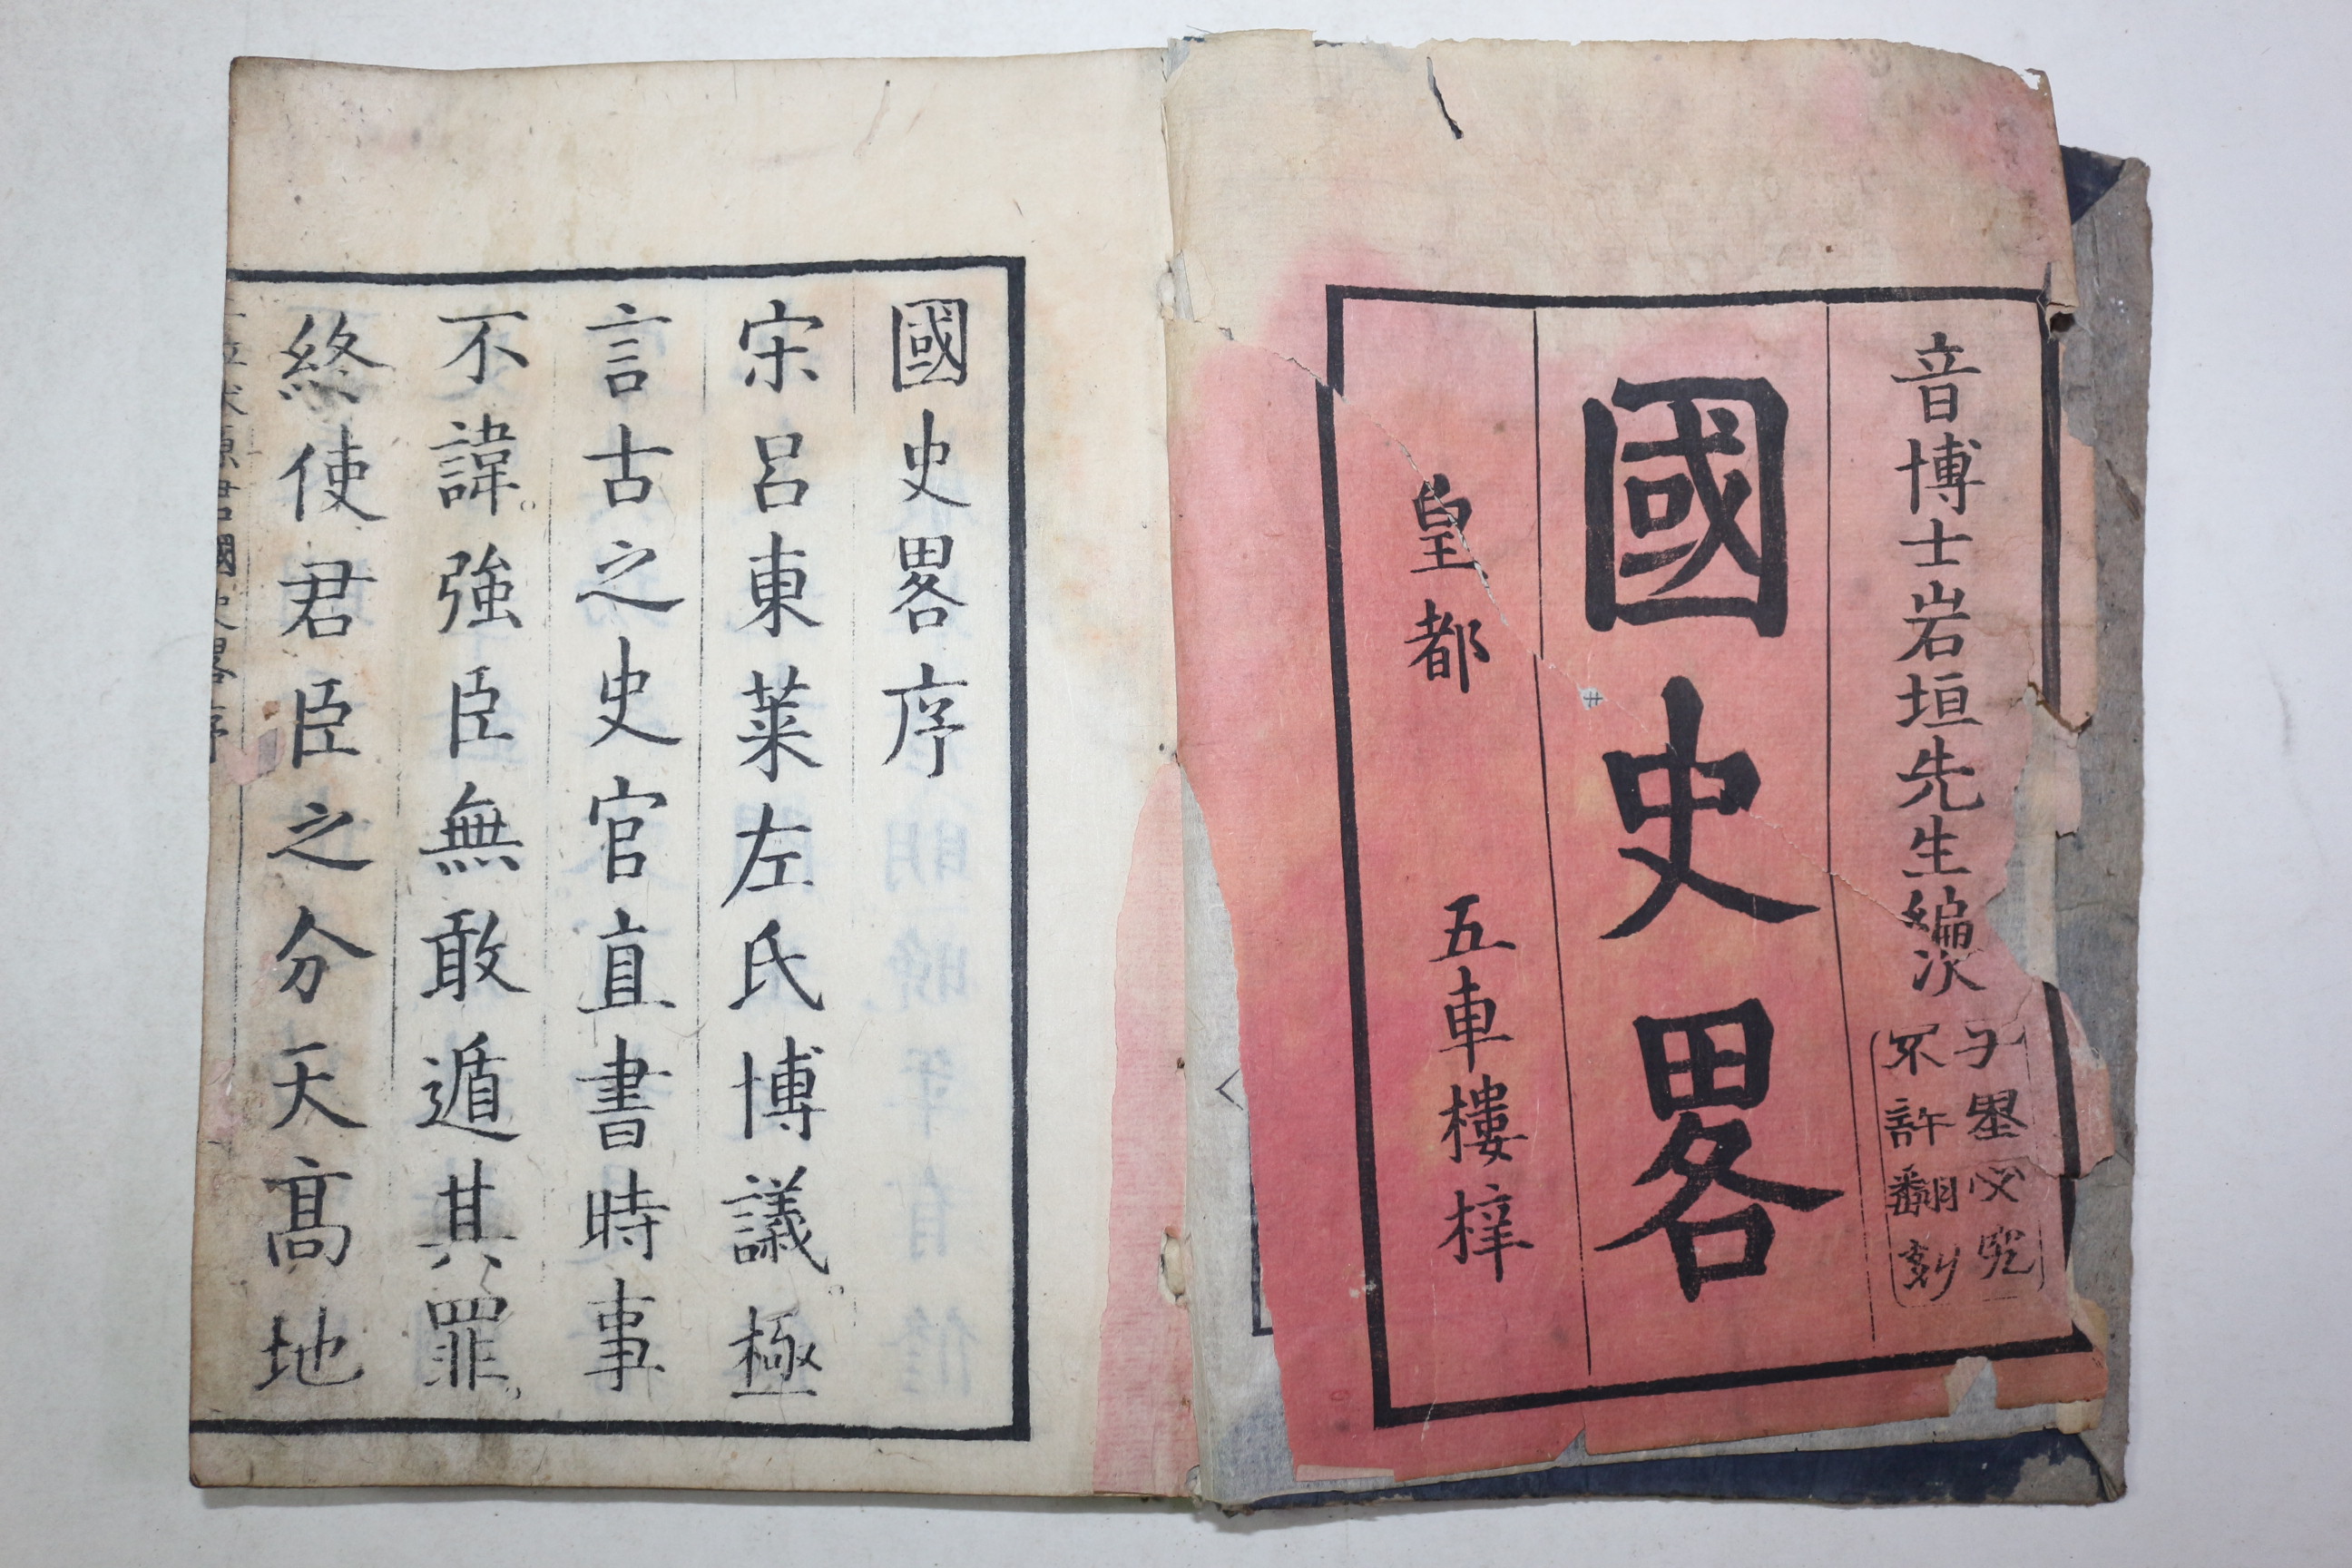 音博士岩垣先生編次
千里必究
不許翻刻
國史畧
皇都 五車樓梓
國史畧序
宋呂東萊左氏博議。極
言古之史官直書時事
不諱。強臣無敢遁其罪。
終使君臣之分天高地
國史畧序